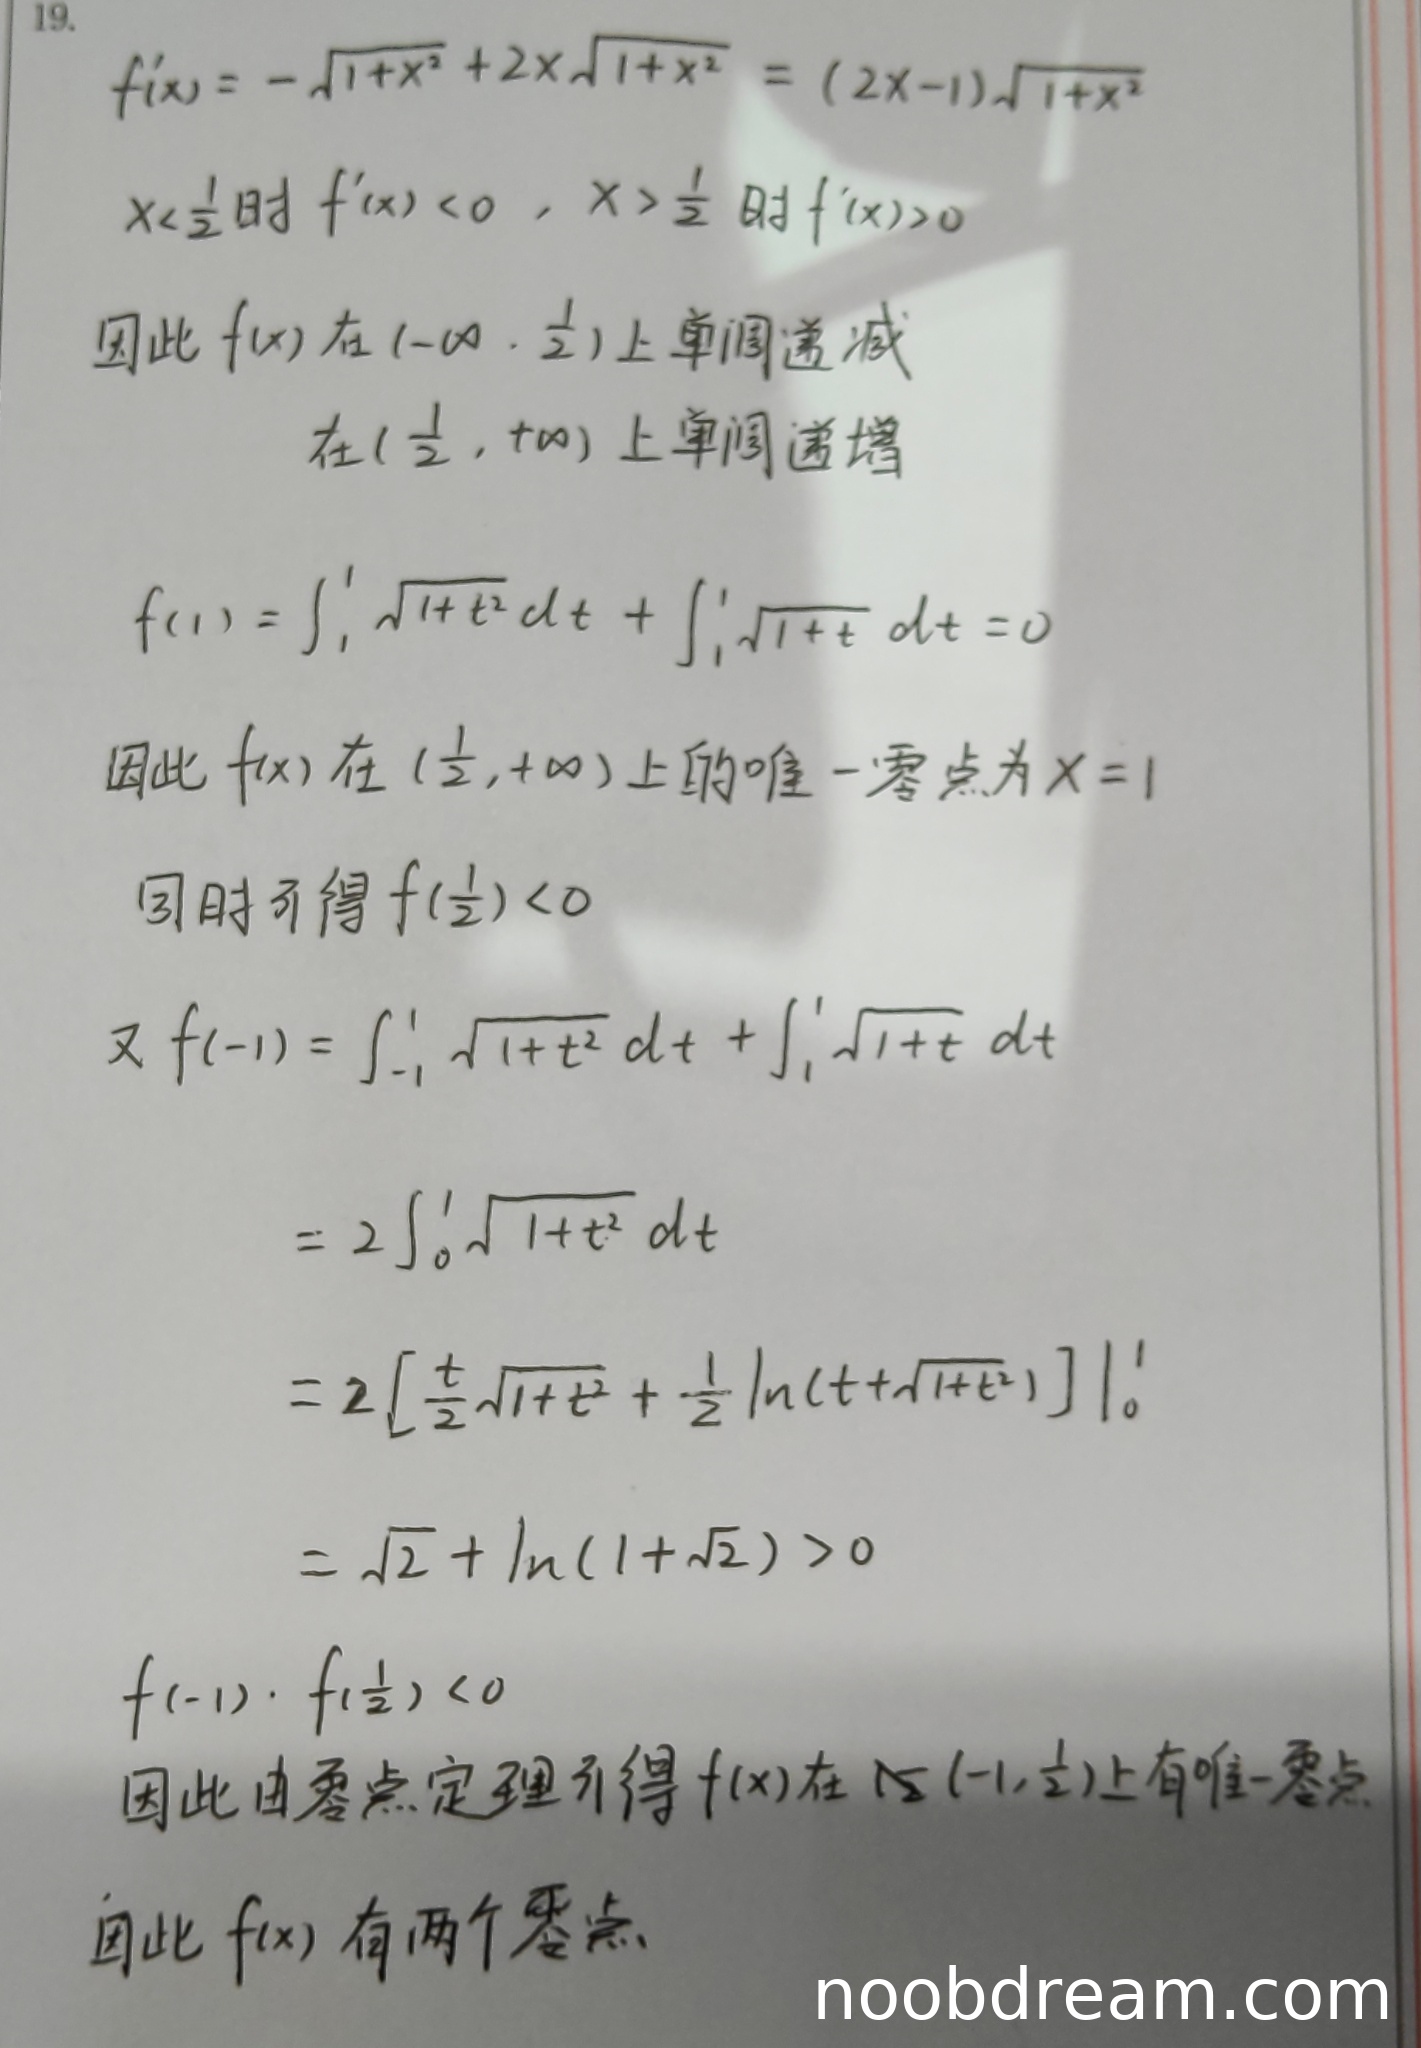 19.
f'(x) = -√(1+x²) + 2x√(1+x²) = (2x-1)√(1+x²)
x<1/2时 f'(x)<0 , x>1/2 时f'(x)>0
因此 f(x) 在 (-∞ . 1/2) 上单调递减
在(1/2 , +∞) 上单调递增
f(1) = ∫₁¹ √(1+t²) dt + ∫₁¹ √(1+t) dt = 0
因此 f(x) 在 (1/2, +∞) 上的唯一零点为 x = 1
同时可得 f(1/2) < 0
又 f(-1) = ∫₋₁¹ √(1+t²) dt + ∫₁¹ √(1+t) dt
= 2∫₀¹ √(1+t²) dt
= 2[t/2 √(1+t²) + 1/2 ln(t+√(1+t²))]|₀¹
= √2 + ln(1+√2) > 0
f(-1) · f(1/2) < 0
因此由零点定理可得 f(x)在 (-1, 1/2)上有唯一零点
因此 f(x) 有两个零点
noobdream.com